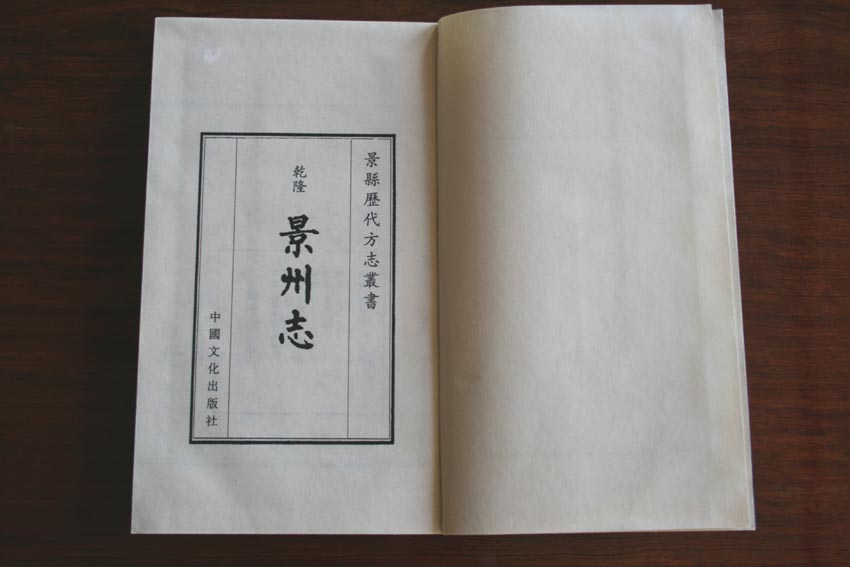 景縣歷代方志叢書
乾隆
景州志
中國文化出版社